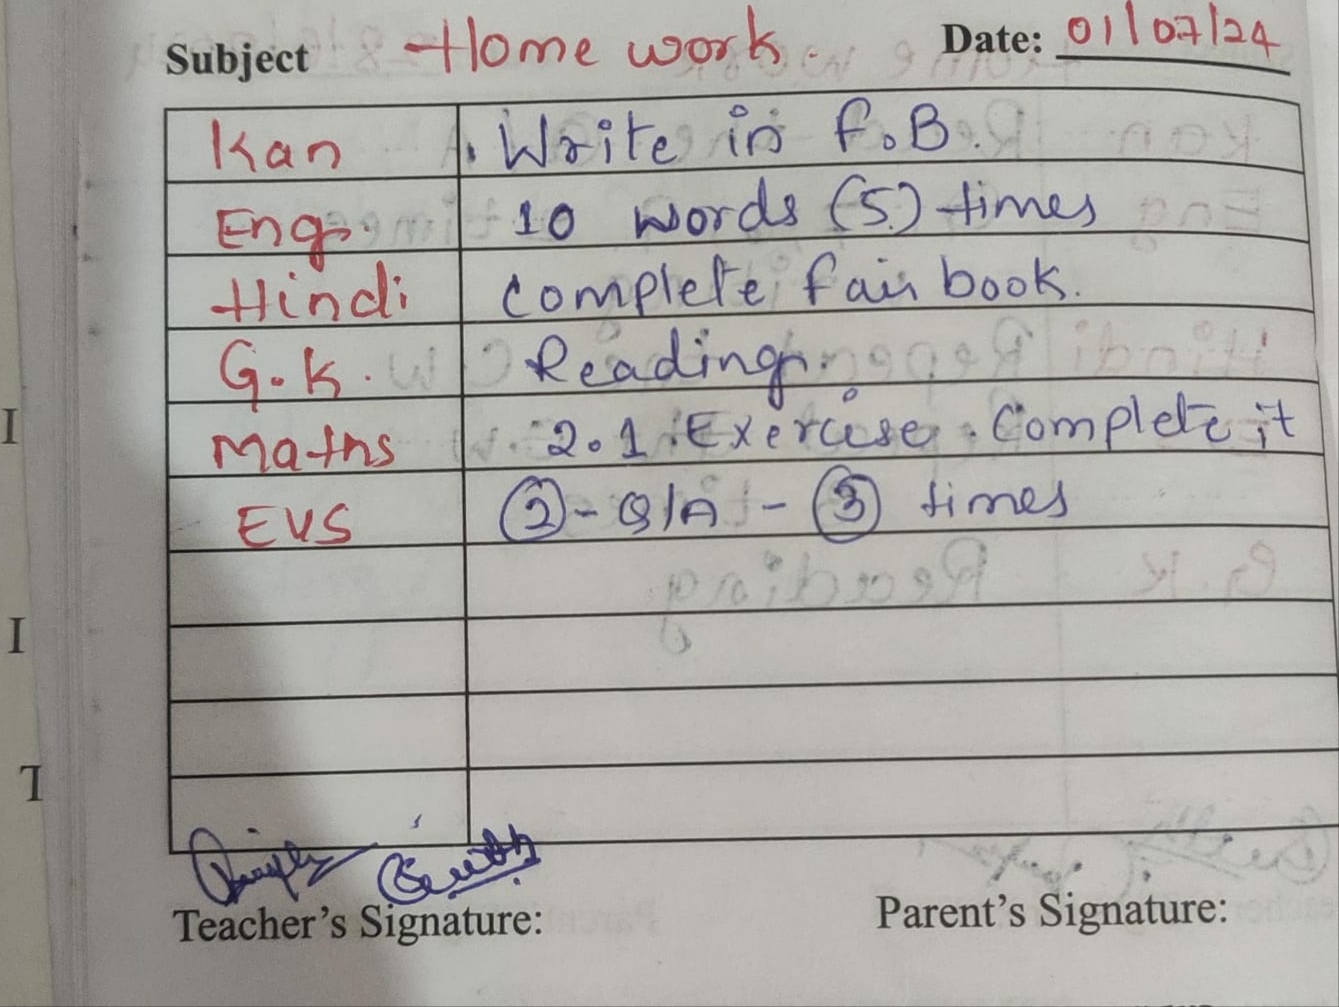 Subject Home work. Date: 01/07/24
Kan . Write in F.B.
Eng. 10 words (5) times
Hindi Complete fair book.
G.K. Reading.
Maths 2.1 Exercise. Complete it
EVS 2 - Q/A - 3 times
I
I
Teacher's Signature: Parent's Signature: